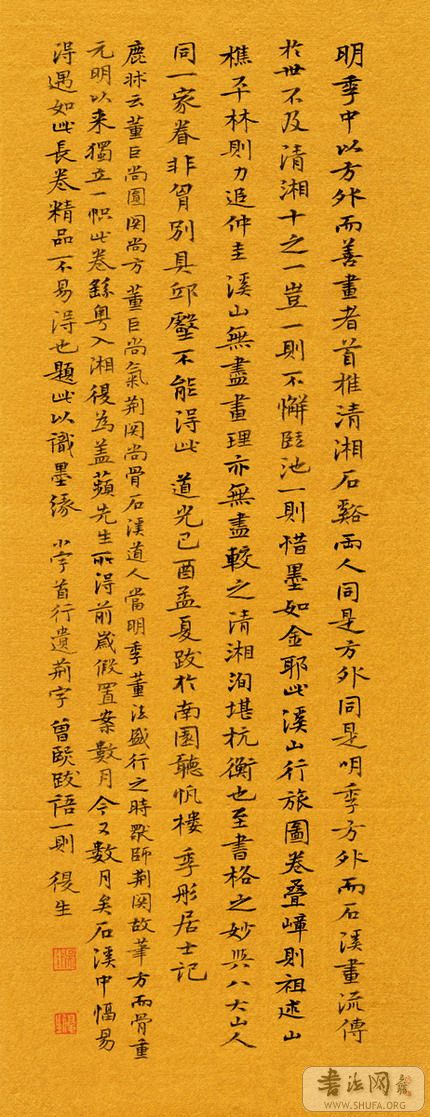 明季中以方外而善畫者首推清湘石谿兩人同是方外同是明季方外而石溪畫流傳
於世不及清湘十之一豈一則不懈臨池一則惜墨如金耶此溪山行旅圖卷叠嶂則祖述山
樵平林則力追仲圭溪山無盡畫理亦無盡較之清湘洵堪抗衡也至書格之妙與八大山人
同一家眷非胷別具邱壑不能得此 道光己酉孟夏跋於南園聽帆樓 季彤居士記
鹿牀云董巨尚圓関尚方 董巨尚氣荆関尚骨石溪道人當明季董法盛行之時獨師荆関故筆方而骨重
元明以來獨立一幟此卷繇粵入湘後為蓋蘋先生所得前歲假置案數月今又數月矣石溪中幅易
得遇如此長卷精品不易得也題此以識墨緣 小字首行遺荆字 曾熙跋語一則 後生
書法网
WWW.SHUFA.ORG